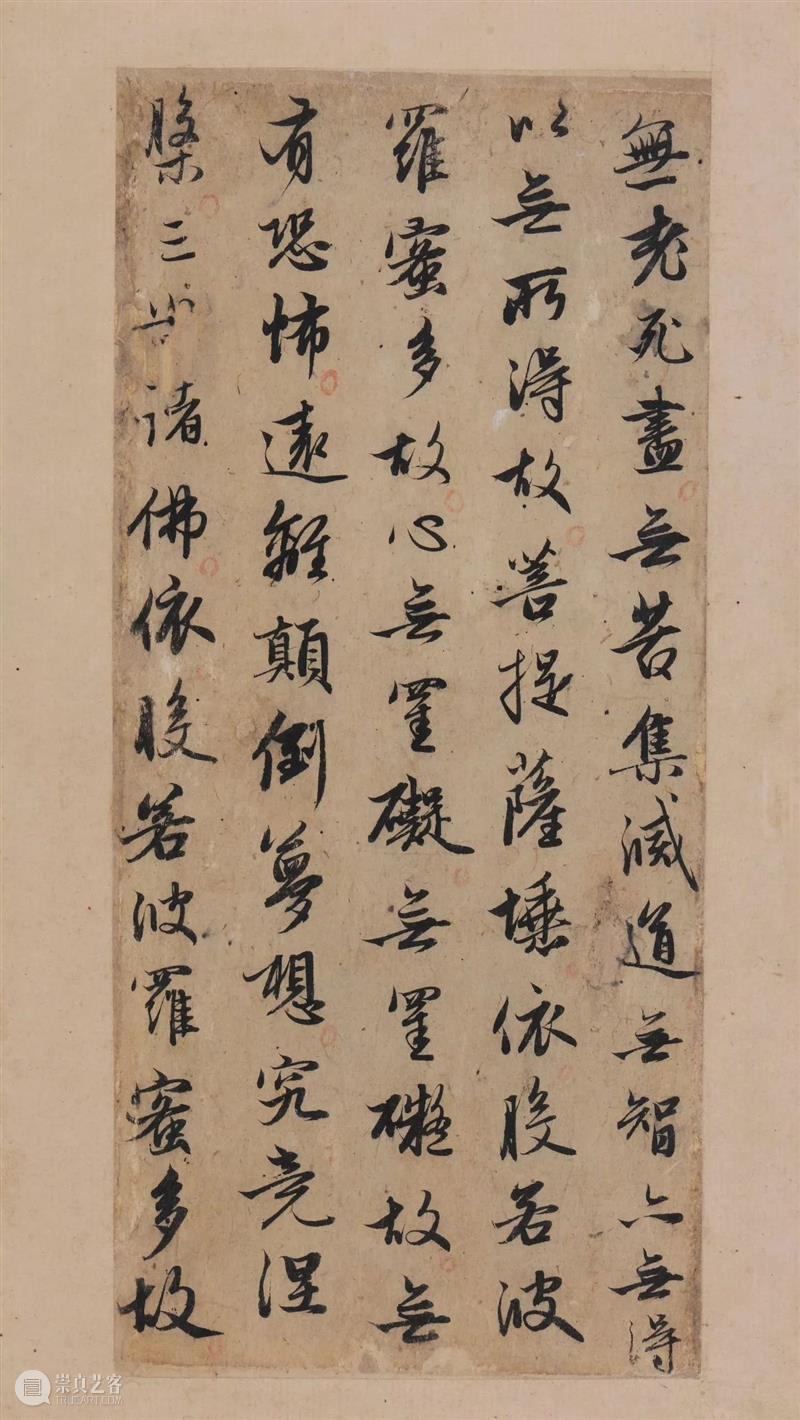 無老死盡無苦集滅道無智亦無得
以無所得故菩提薩埵依般若波
羅蜜多故心無罣礙無罣礙故無
有恐怖遠離顛倒夢想究竟涅
槃三世諸佛依般若波羅蜜多故
崇真艺客
TRUEART.COM